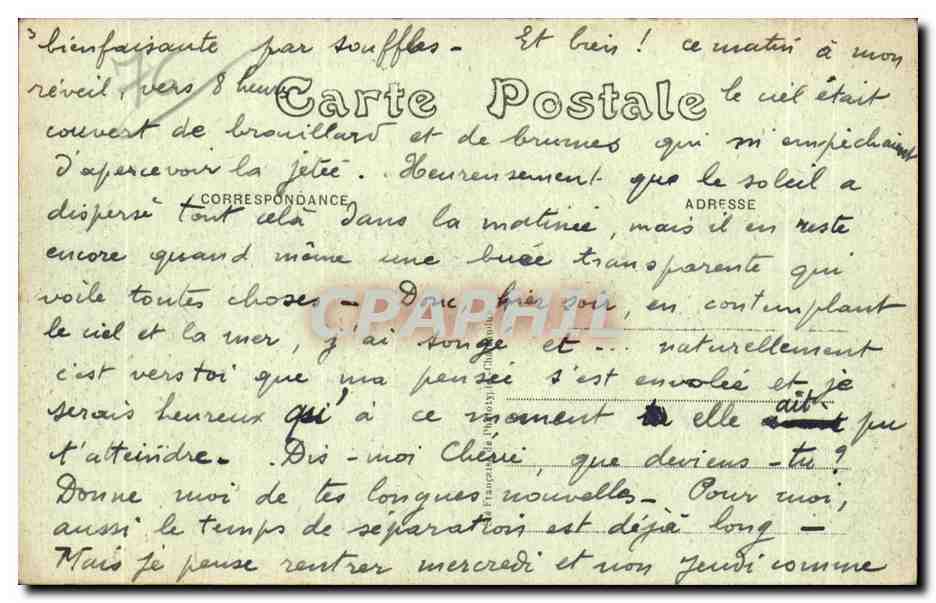 3
bienfaisante par souffles - Et bien ! ce matin à mon
76
réveil, vers 8 heures le ciel était
Carte Postale
couvert de brouillard et de brumes qui m'empêchaient
d'apercevoir la jetée. Heureusement que le soleil a
CORRESPONDANCE ADRESSE
dispersé tout celà dans la matinée, mais il en reste
encore quand même une buée transparente qui
voile toutes choses - Donc hier soir, en contemplant
CPAPHIL
le ciel et la mer, j'ai songé et ... naturellement
c'est vers toi que ma pensée s'est envolée et je
serais heureux qu'à ce moment elle ait pu
t'atteindre - Dis-moi Chérie, que deviens-tu ?
Donne moi de tes longues nouvelles - Pour moi,
aussi le temps de séparation est déjà long -
Mais je pense rentrer mercredi et non Jeudi comme
Française de Phototypie